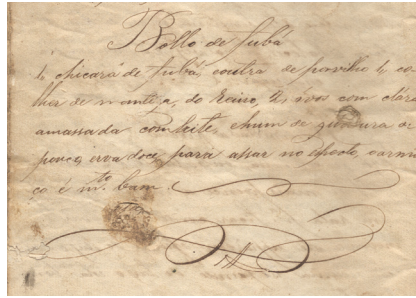 Bollo de fubá
1, chicará de fubá, contra de povilu 1, co
lher de mantiga, do Reino, 2, ovos com clára
amassada com leite, hum de gurdura de
porco, erva doce, para assar no esposto, a
co é m.to bam.